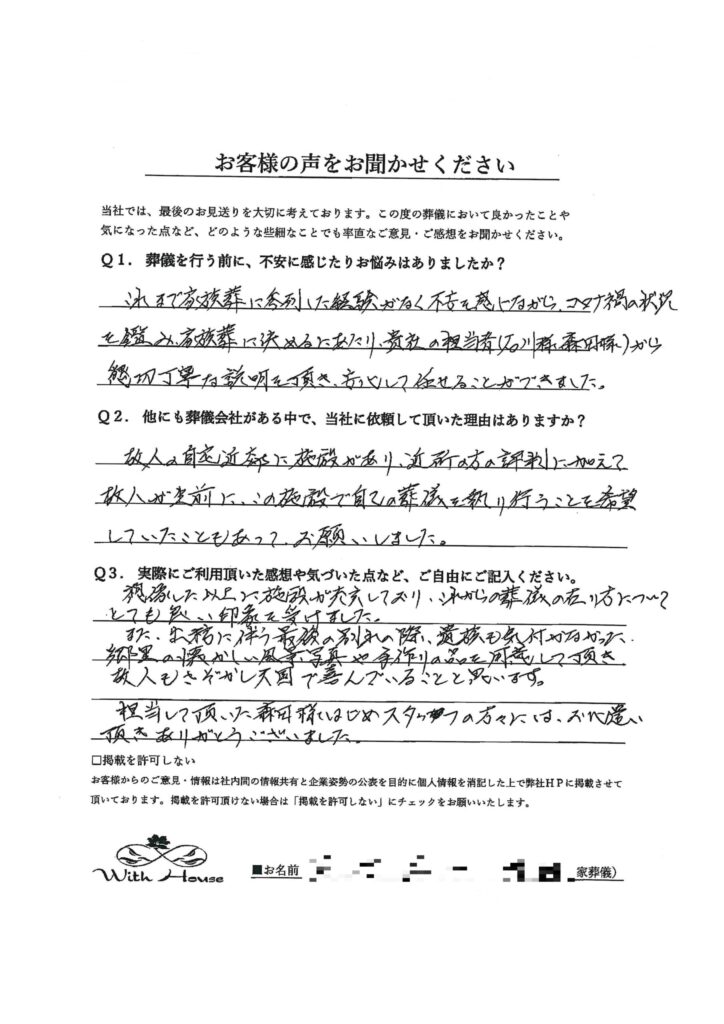 お客様の声をお聞かせください
当社では、最後のお見送りを大切に考えております。この度の葬儀において良かったことや
気になった点など、どのような些細なことでも率直なご意見・ご感想をお聞かせください。
Q1. 葬儀を行う前に、不安に感じたりお悩みはありましたか?
これまで家族葬に参列した経験がなく不安を感じながら、コロナ禍の状況
を鑑み、家族葬に決めるにあたり、貴社の担当者(石川様、森田様)から
親切丁寧な説明を頂き、安心して任せることができました。
Q2. 他にも葬儀会社がある中で、当社に依頼して頂いた理由はありますか?
故人の自宅近郊に施設があり、近所の方の評判に加えて
故人が生前に、この施設で自己の葬儀を執り行うことを希望
していたこともあって、お願いしました。
Q3. 実際にご利用頂いた感想や気づいた点など、ご自由にご記入ください。
想像した以上に施設が充実しており、これからの葬儀の在り方について
とても良い印象を受けました。
また、出棺に伴う最後の別れの際、遺族も気付かなかった、
郷里の懐かしい風景写真や手作りの品を用意して頂き
故人もさぞかし天国で喜んでいることと思います。
担当して頂いた森田様はじめスタッフの方々には、お心遣い
頂きありがとうございました。
□掲載を許可しない
お客様からのご意見・情報は社内間の情報共有と企業姿勢の公表を目的に個人情報を消記した上で弊社HPに掲載させて
頂いております。掲載を許可頂けない場合は「掲載を許可しない」にチェックをお願いいたします。
With House
■お名前 家葬儀)